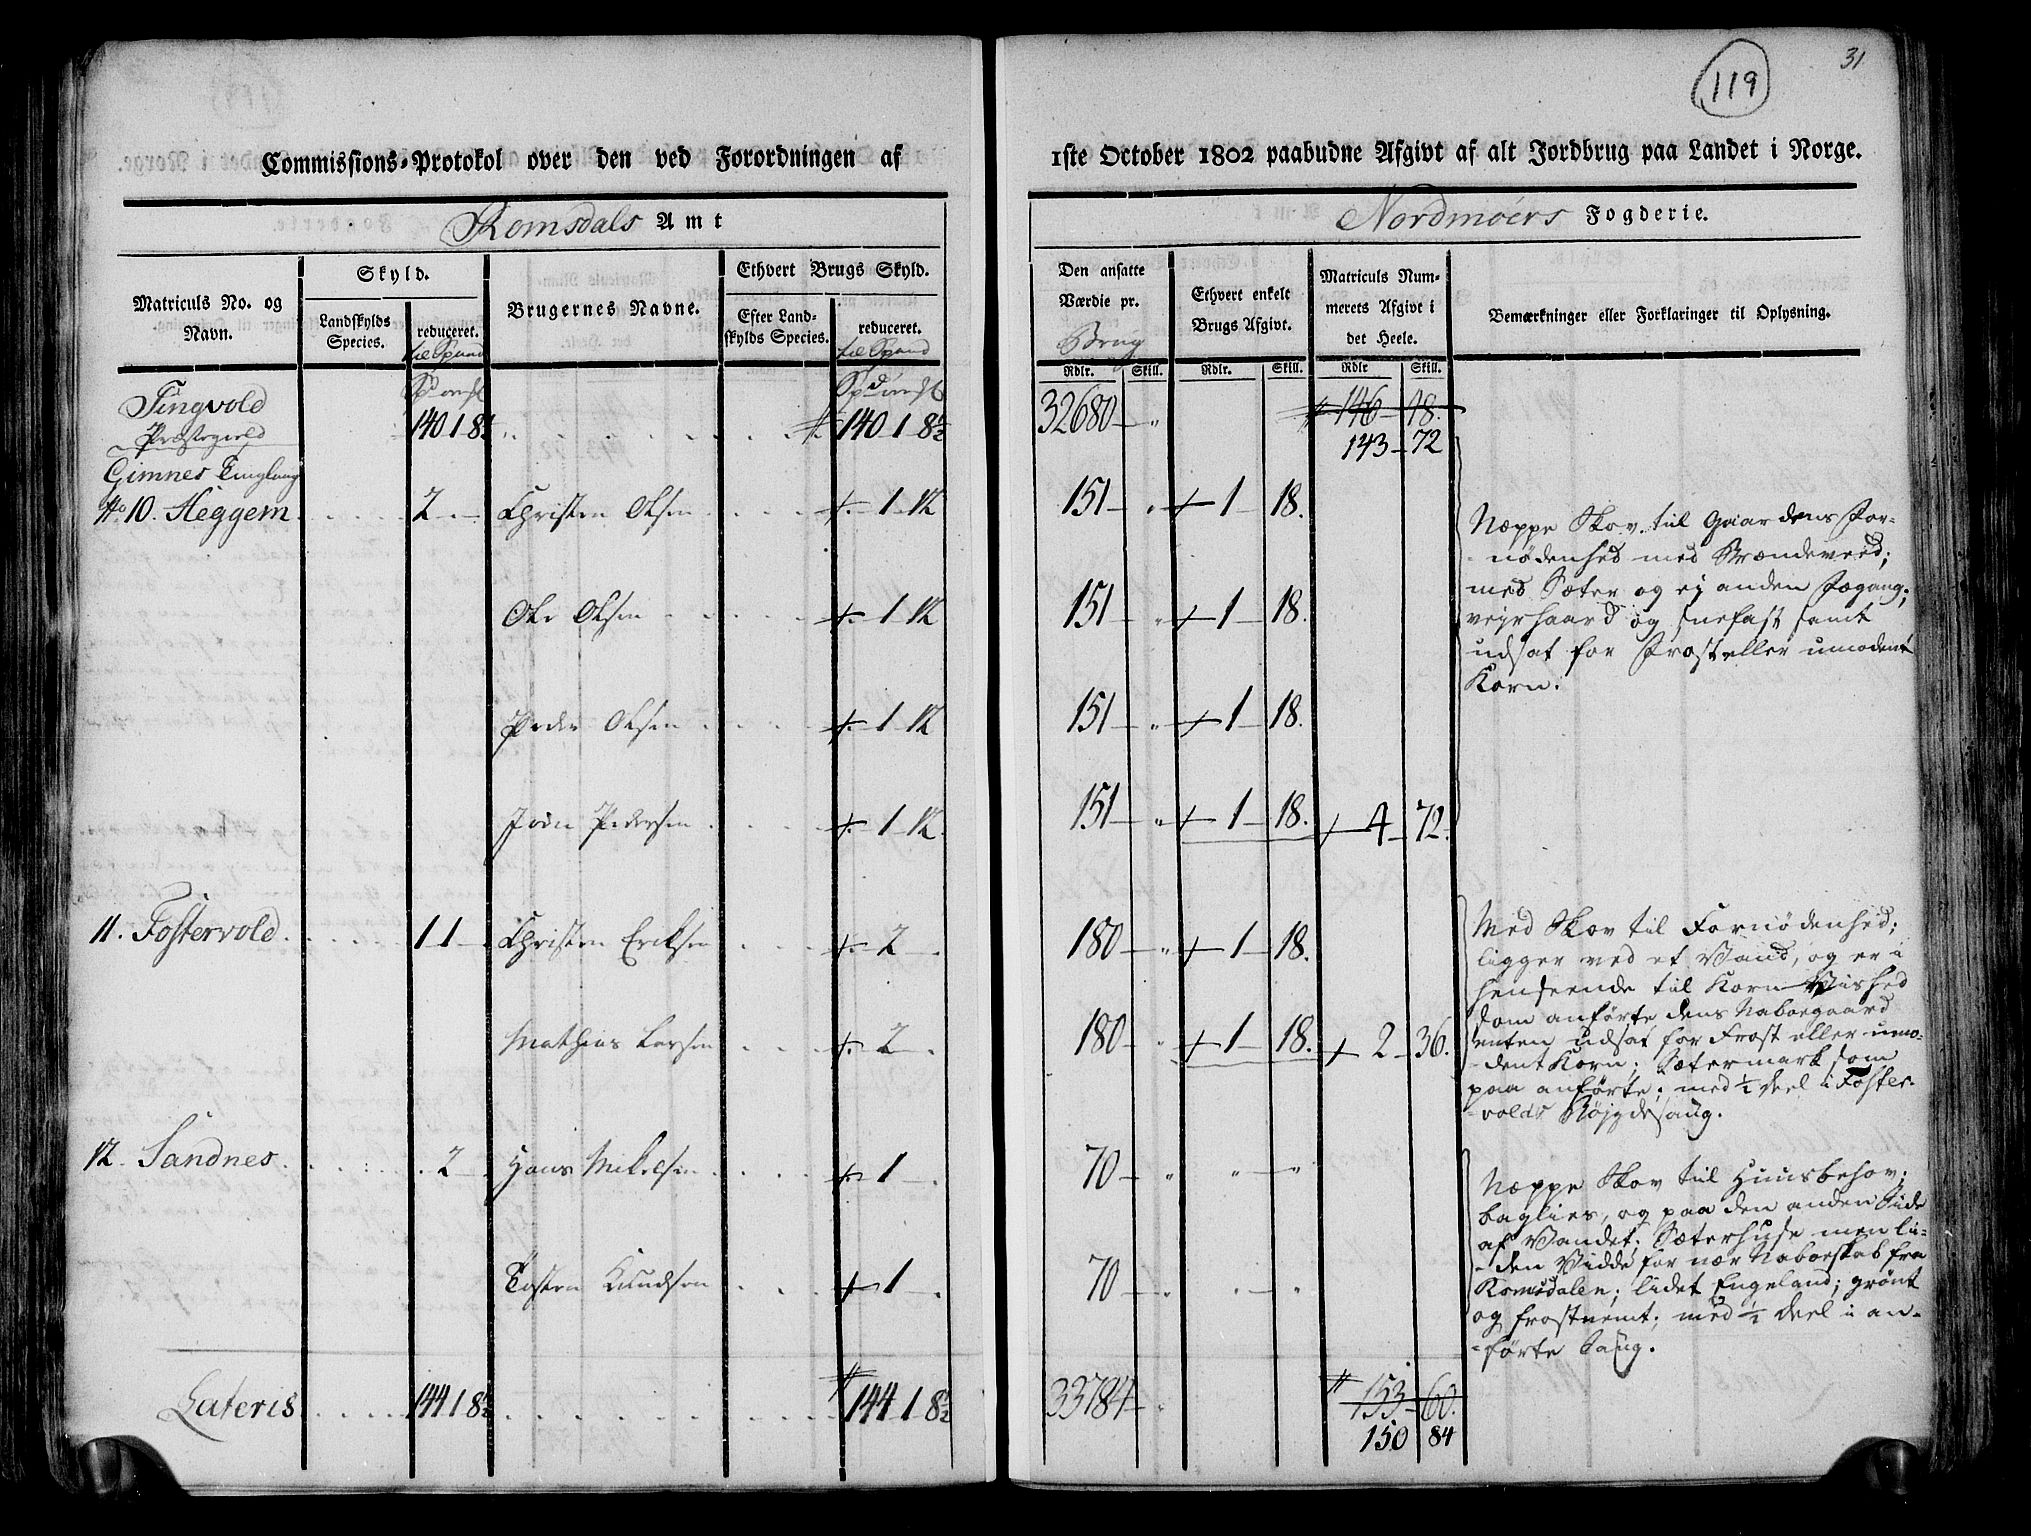 119
31
Commissions-Protokol over den ved Forordningen af 1ste October 1802 paabudne Afgivt af alt Jordbrug paa Landet i Norge.
Romsdals Amt
Nordmøers Fogderie.
Matriculs No. og Navn.
Skyld.
Landskylds Species.
reduceret. til Spand
Brugernes Navne.
Ethvert Brugs Skyld.
Efter Landskylds Species.
reduceret. til Spand
Den ansatte Værdie pr. Brug
Ethvert enkelt Brugs Afgivt.
Matriculs Nummerets Afgivt i det Heele.
Bemærkninger eller Forklaringer til Oplysning.
Rdlr. Skill. Rdlr. Skill. Rdlr Skill.
Tingvold
Præstegield 140 1 8½ 140 1 8½ 32680 " 146 18.
143 72
Gimnes Tinglaug
No 10. Heggem 2 Christen Olsen 1 12 151 " 1 18.
Ole Olsen 1 12 151 " 1 18.
Peder Olsen 1 12 151 " 1 18.
John Pedersen 1 12 151 " 1 18. 4 72
Næppe Skov til Gaardens For-
nødenhed med Brændeveed;
med Sæter og ej anden Fægang;
vejrhaard og snefast samt
udsat for Frost eller umodent
Korn.
11. Fostervold 1 1 Christen Eriksen 2 180 " 1 18.
Mathias Larsen 2 180 " 1 18. 2 36.
Med Skov til Fornødenhed;
ligger ved et Vand, og er i
henseende til Korn Vished
som anførte dens Naboegaard
enten udsat for Frost eller umo-
dent Korn; Sætermark som
paa anførte; med ½ deel i Foster-
volds Højgdesaug.
12. Sandnes 2 Hans Mikelsen 1 70 " " "
Tosten Knudsen 1 70 " " "
Næppe Skov til Huusbehov;
baglies, og paa den anden Side
af Vandet. Sæterhuse men li-
den Vidde for nær Naboeskab fra
Romsdalen; lidet Engeland; grønt
og frostnemt; med ½ deel i an-
førte Saug.
Lateris 144 1 8½ 144 1 8½ 33784 " 153 60.
150 84